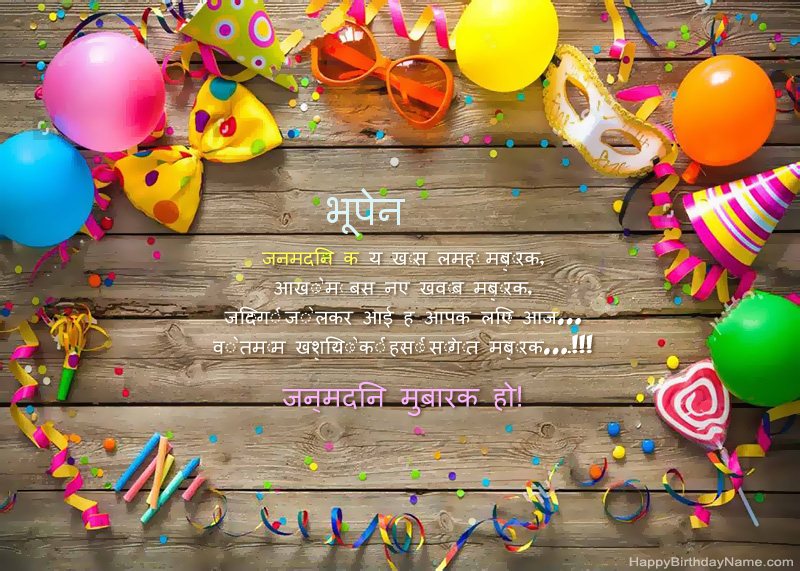 भूपेन
जनमदनि क य खास लमह मबारक,
आखोम बस नए खवाब मबारक,
जदिगी जो लेकर आई ह आपक लएि आज...
वो तमाम खशयिो की हसी सौगात मबारक...!!!
जन्मदनि मुबारक हो!
HappyBirthdayName.com